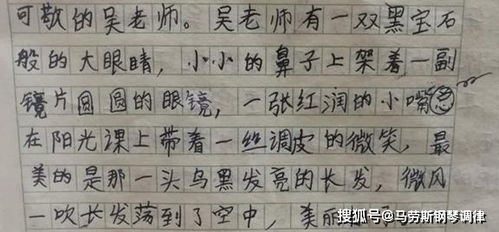 可敬的吴老师。吴老师有一双黑宝石
般的大眼睛，小小的鼻子上架着一副
镜片圆圆的眼镜，一张红润的小嘴总
在阳光课上带着一丝调皮的微笑，最
美的是那一头乌黑发亮的长发，微风
一吹长发荡到了空中，美丽
搜狐号@马劳斯钢琴调律